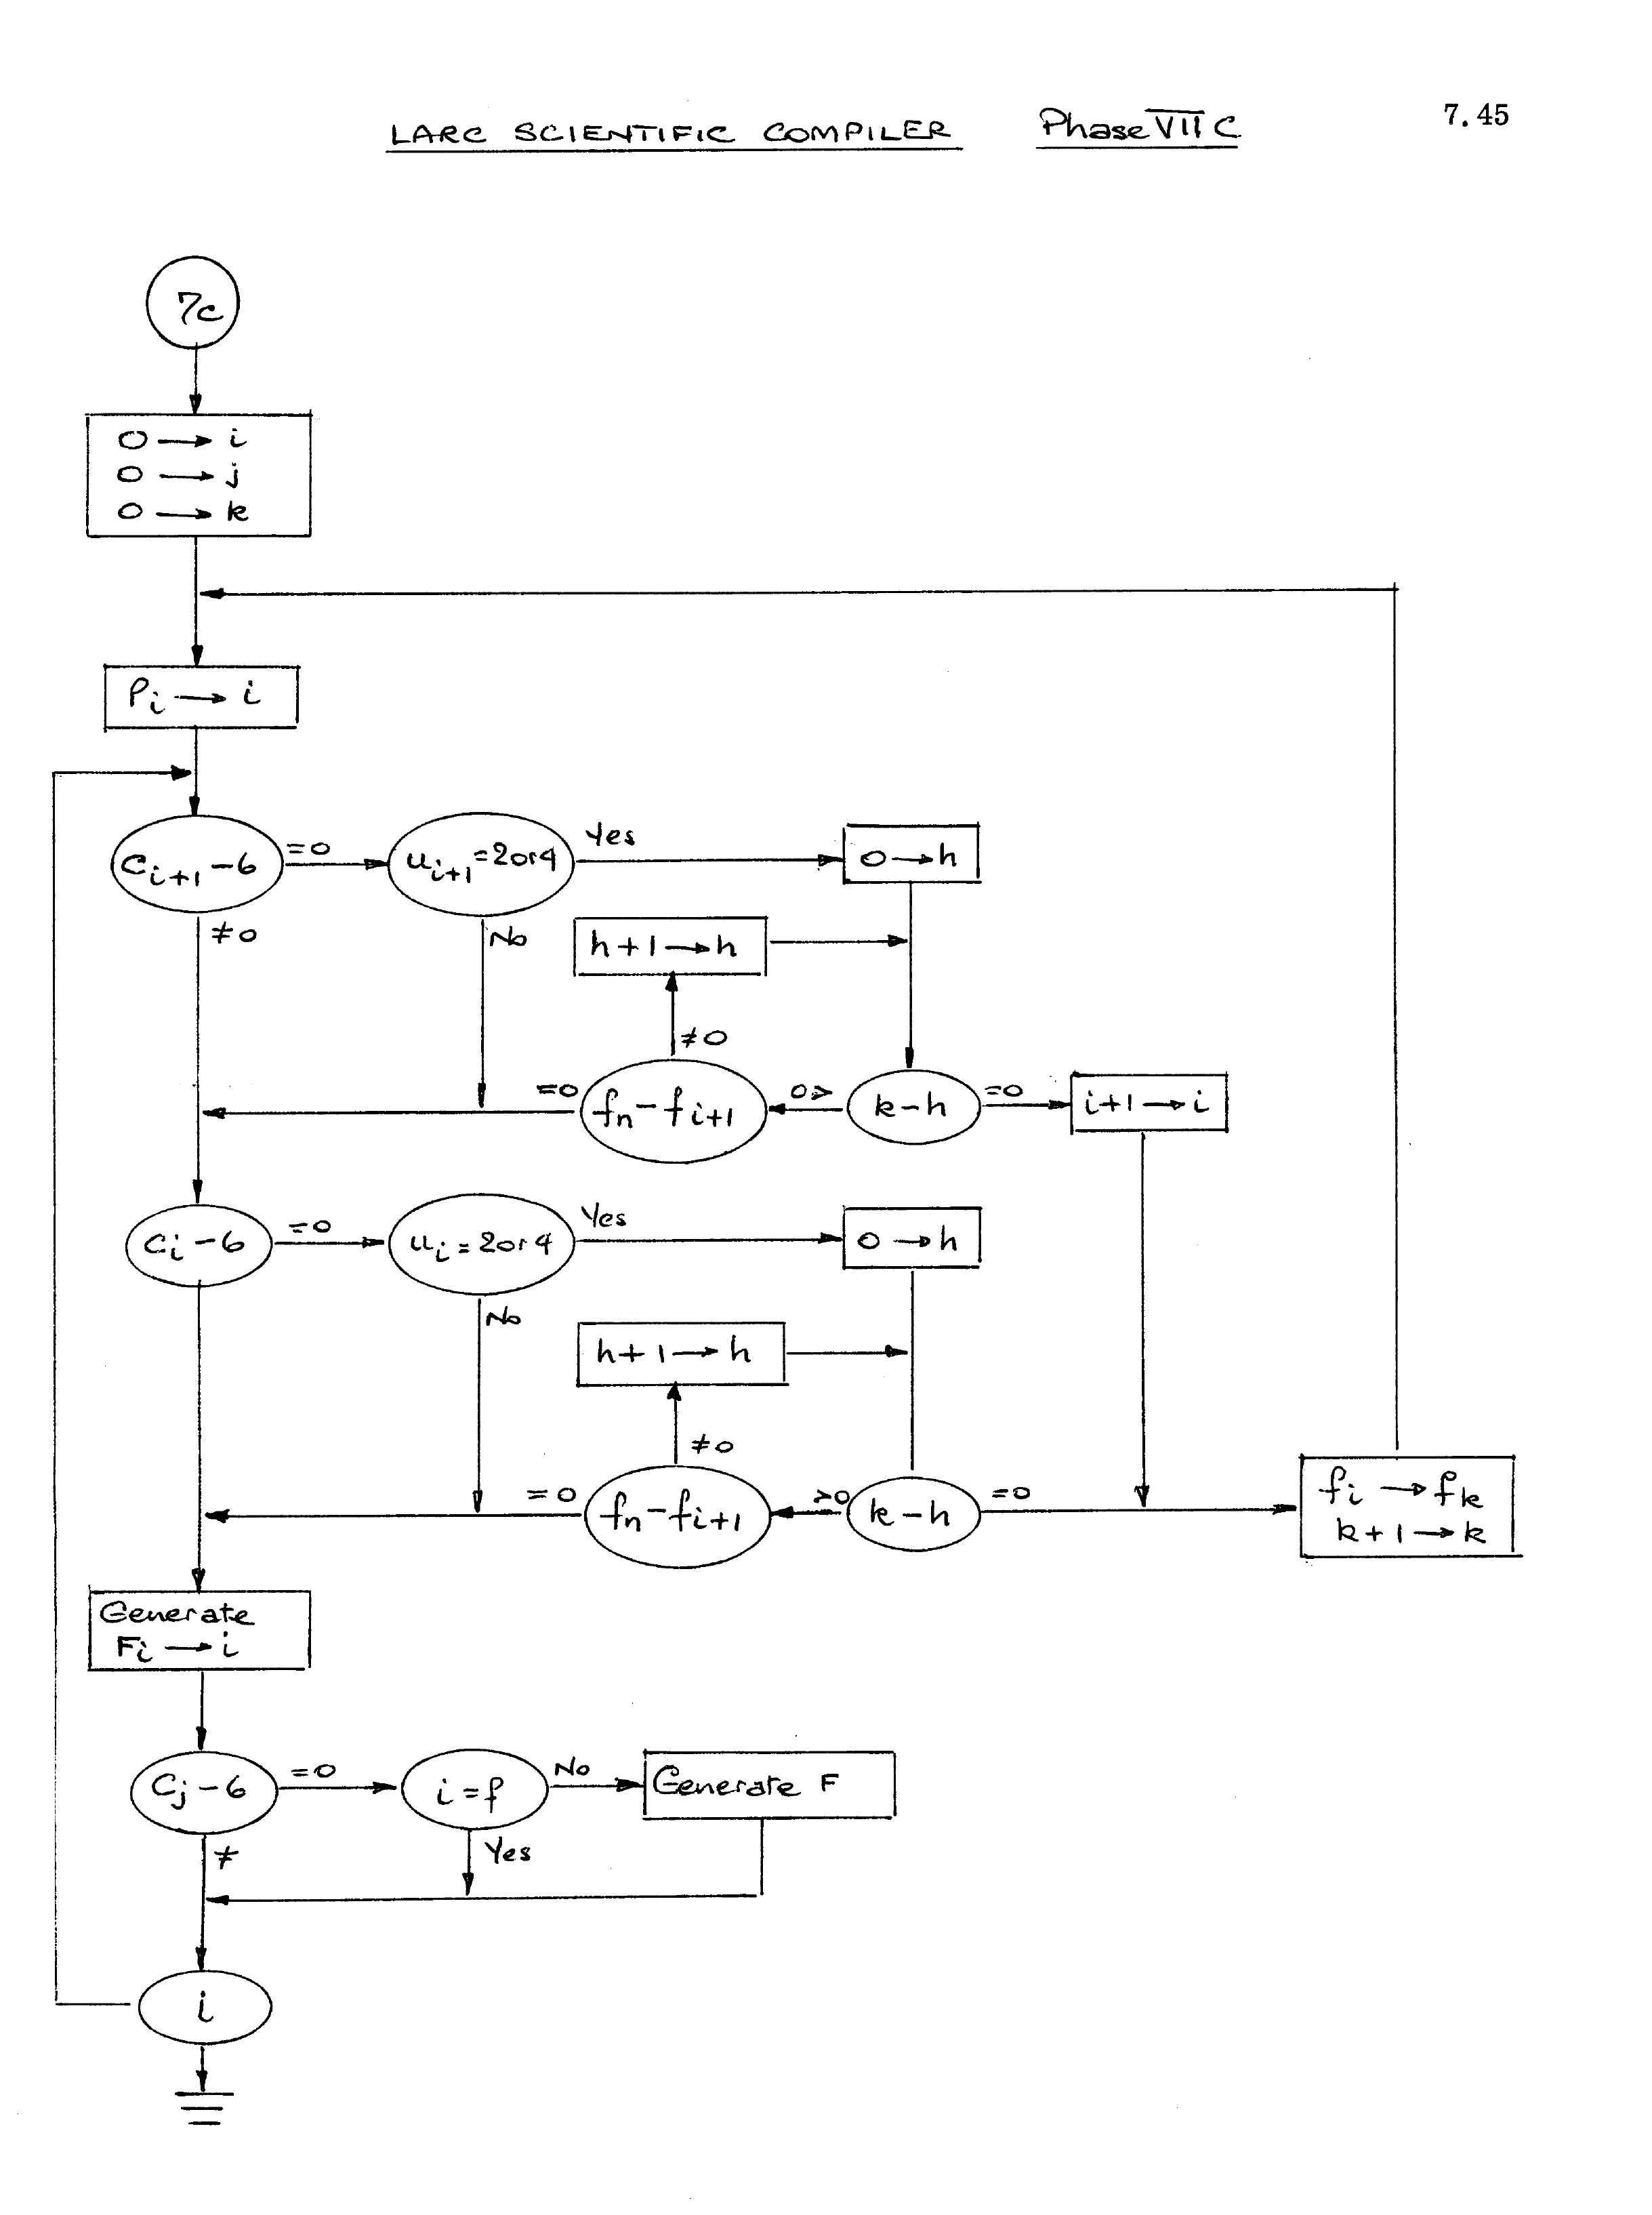 LARC SCIENTIFIC COMPILER Phase VII C
7.45
7c
0 → i
0 → j
0 → k
Pi → i
Ci+1 - 6
=0
ui+1 = 2 or 4
Yes
0 → h
≠0
No
h+1 → h
≠0
=0
fn - fi+1
0>
k-h
=0
i+1 → i
Ci - 6
=0
ui = 2 or 4
Yes
0 → h
No
h+1 → h
≠0
=0
fn - fi+1
>0
k-h
=0
fi → fk
k+1 → k
Generate
Fi → i
Cj - 6
=0
i = f
No
Generate F
≠
Yes
i